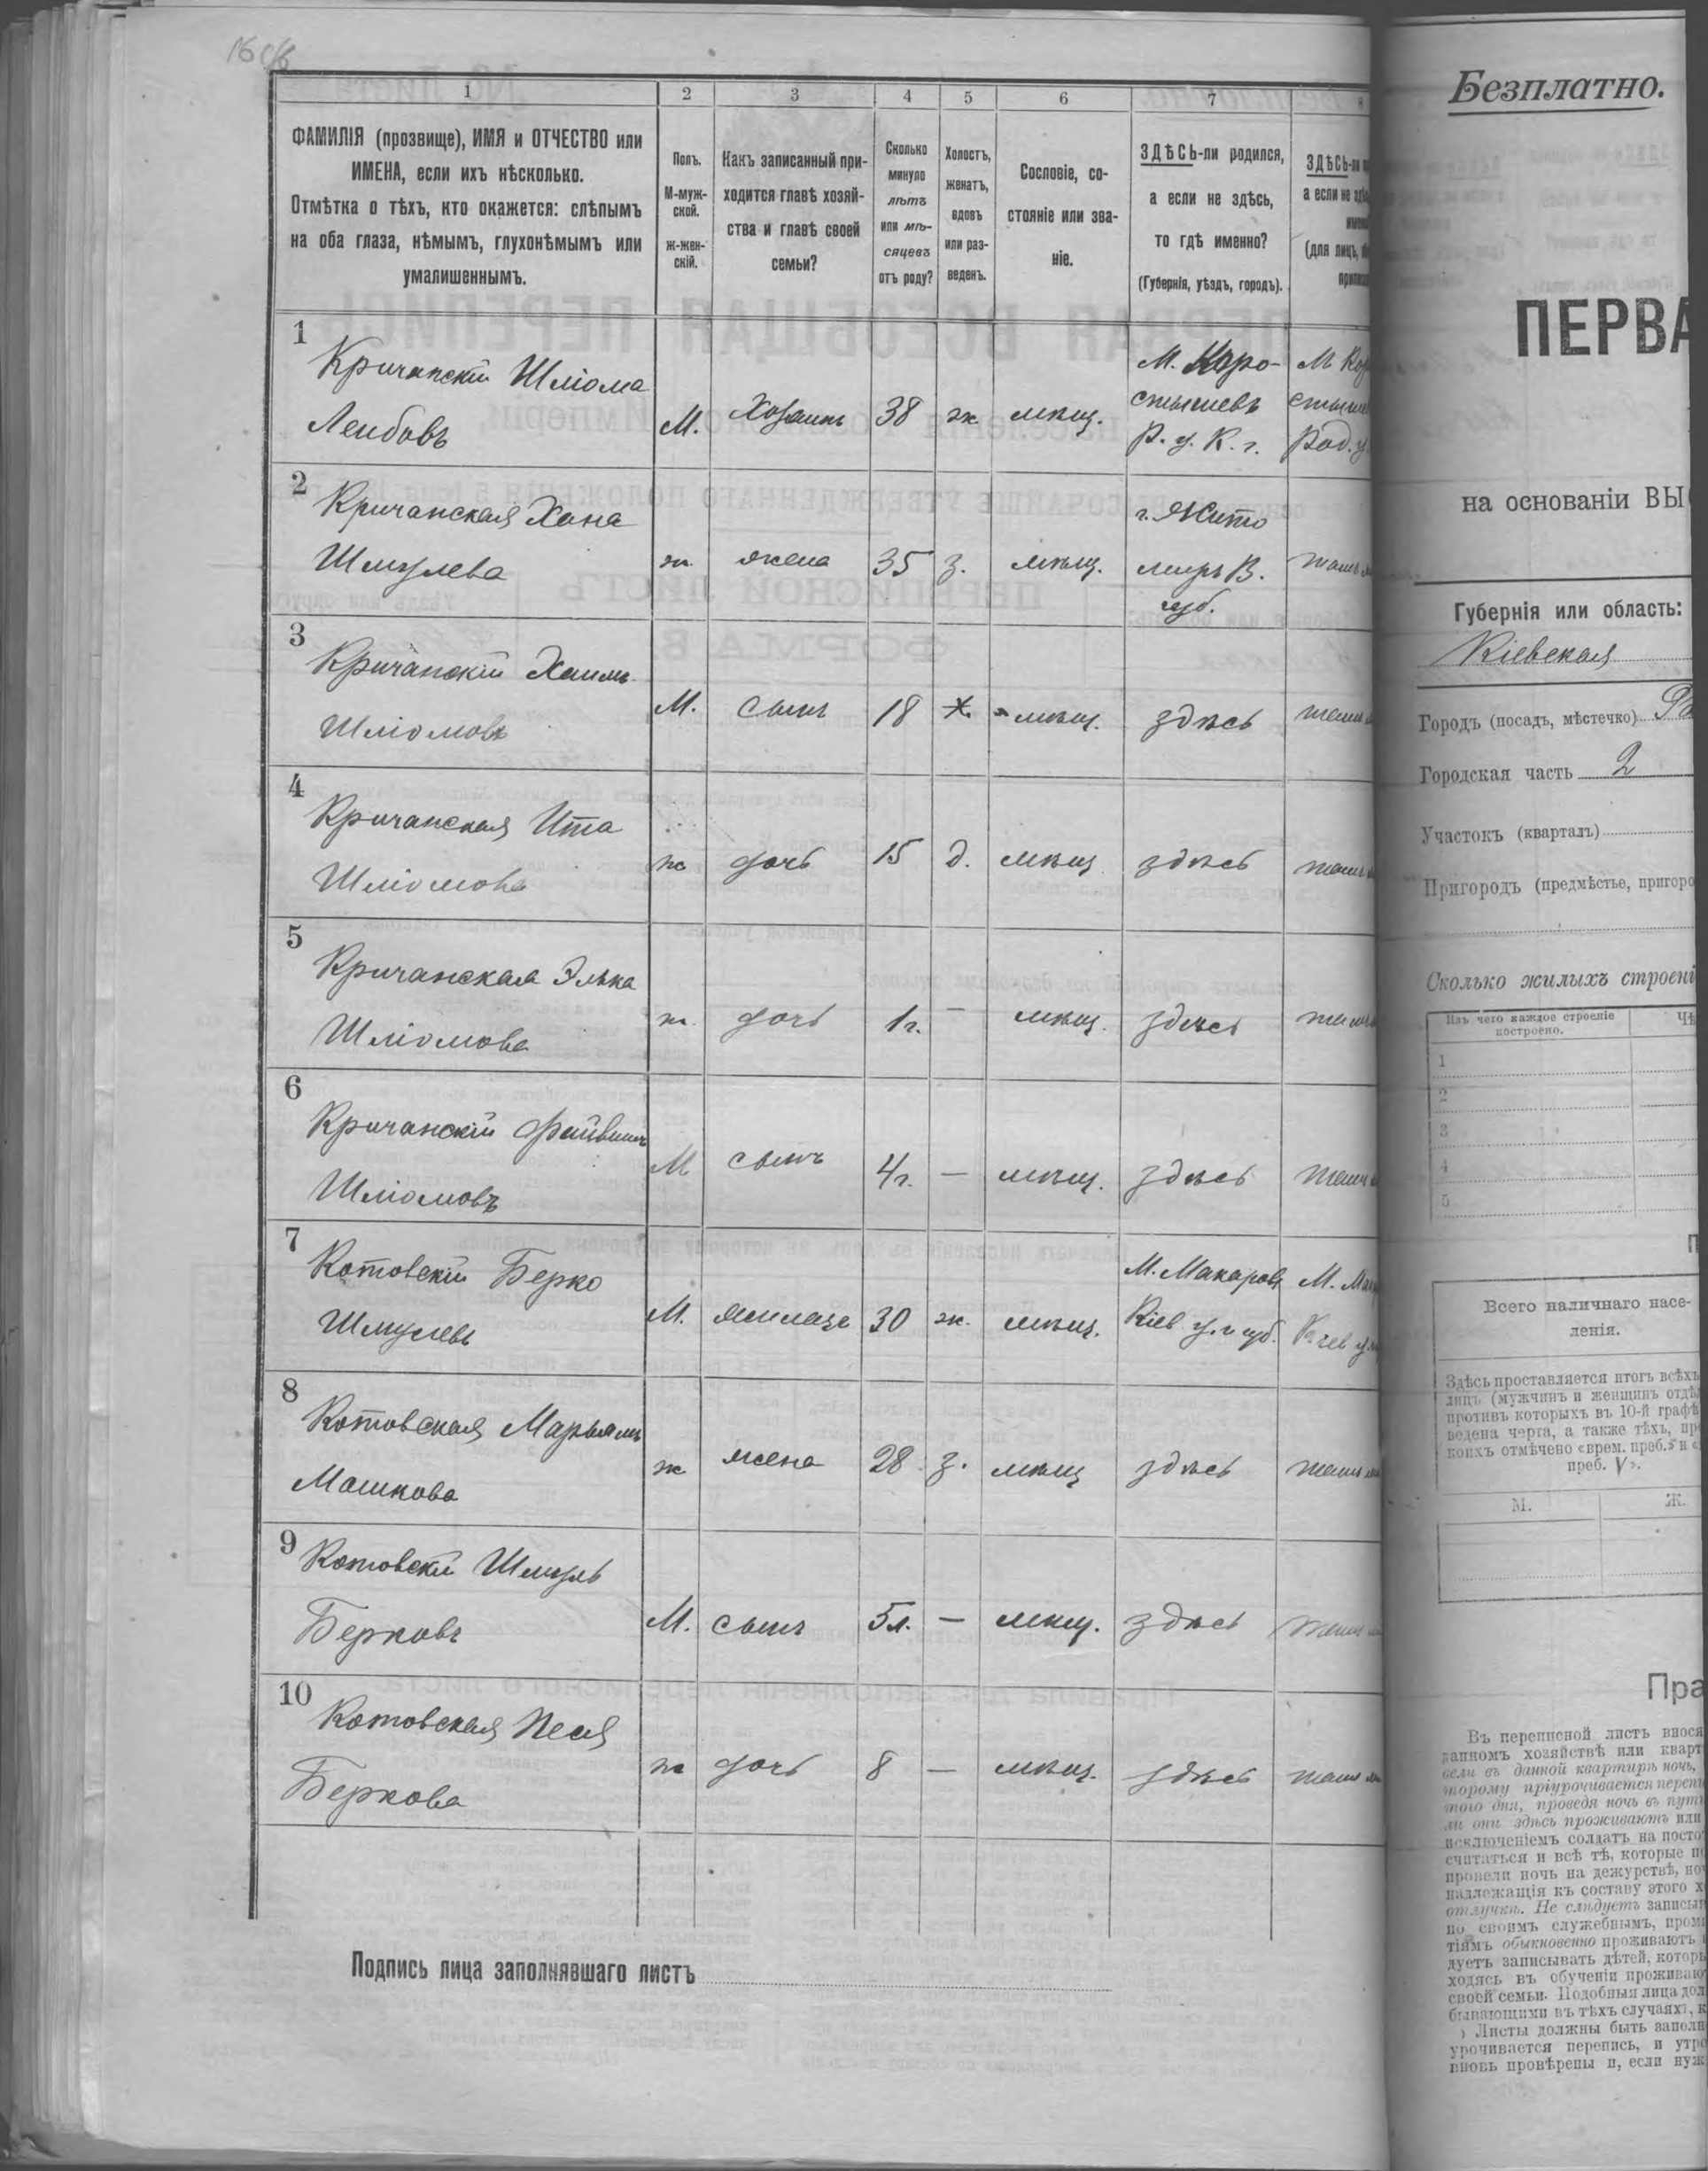 1 2 3 4 5 6 7 8
ФАМИЛІЯ (прозвище), ИМЯ и ОТЧЕСТВО или
ИМЕНА, если ихъ нѣсколько.
Отмѣтка о тѣхъ, кто окажется: слѣпымъ
на оба глаза, нѣмымъ, глухонѣмымъ или
умалишеннымъ.
Полъ.
М-муж-
ской.
ж-жен-
скій.
Какъ записанный при-
ходится главѣ хозяй-
ства и главѣ своей
семьи?
Сколько
минуло
лѣтъ
или мѣ-
сяцевъ
отъ роду?
Холостъ,
женатъ,
вдовъ
или раз-
веденъ.
Сословіе, со-
стояніе или зва-
ніе.
ЗДѢСЬ-ли родился,
а если не здѣсь,
то гдѣ именно?
(Губернія, уѣздъ, городъ).
ЗДѢСЬ-ли
а если не здѣ
(для лицъ,
1
Кричанскій Шліома
Лейбовъ
М.
Хозяинъ
38
ж.
мѣщ.
М. Коро-
стышевъ
Р. у. К. г.
М Кор
стыше
Рад. у
2
Кричанская Хана
Шмулева
ж.
жена
35
з.
мѣщ.
г. Жито
миръ В.
губ.
тамъ
3
Кричанскій Хаимъ
Шліомовъ
М.
сынъ
18
х.
мѣщ.
здѣсь
тамъ
4
Кричанская Ита
Шліомова
ж
дочь
15
д.
мѣщ
здѣсь
тамъ
5
Кричанская Элька
Шліомова
ж.
дочь
1г.
—
мѣщ.
здѣсь
тамъ
6
Кричанскій Файвишъ
Шліомовъ
М
сынъ
4г.
—
мѣщ.
здѣсь
тамъ
7
Котовскій Берко
Шмулевъ
М.
жилецъ
30
ж.
мѣщ.
М. Макаровъ
Кіев у. и губ.
М. Мак
Кіев у.
8
Котовская Марьямъ
Мошкова
ж
жена
28
з.
мѣщ
здѣсь
тамъ
9
Котовскій Шмуль
Берковъ
М.
сынъ
5л.
—
мѣщ.
здѣсь
тамъ
10
Котовская Песя
Беркова
ж
дочь
8
—
мѣщ.
здѣсь
тамъ
Подпись лица заполнявшаго листъ
Безплатно.
ПЕРВА
на основаніи ВЫ
Губернія или область:
Кіевская
Городъ (посадъ, мѣстечко) Ра
Городская часть 2
Участокъ (кварталъ)
Пригородъ (предмѣстье, пригоро
Сколько жилыхъ строені
Изъ чего каждое строеніе
построено.
1
2
3
4
5
Всего наличнаго насе-
ленія.
Здѣсь проставляется итогъ всѣхъ
лицъ (мужчинъ и женщинъ отдѣ
противъ которыхъ въ 10-й графѣ
ведена черта, а также тѣхъ, пр
коихъ отмѣчено «врем. преб.» и «
преб. V».
М. Ж.
Пра
Въ переписной листъ внося
занномъ хозяйствѣ или кварт
вели въ данной квартирѣ ночь,
торому пріурочивается переп
того дня, проведя ночь въ пут
ли они здѣсь проживаютъ или
исключеніемъ солдатъ на посто
считаться и всѣ тѣ, которые н
провели ночь на дежурствѣ, но
надлежащія къ составу этого х
отлучки. Не слѣдуетъ записыв
по своимъ служебнымъ, пром
тіямъ обыкновенно проживаютъ
дуетъ записывать дѣтей, котор
ходясь въ обученіи проживаю
своей семьи. Подобныя лица дол
бывающими въ тѣхъ случаяхъ, к
Листы должны быть заполн
урочивается перепись, и утро
вновь провѣрены и, если нуж